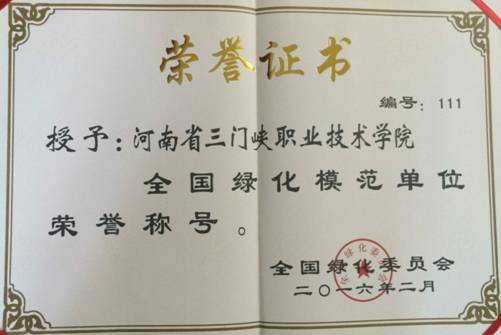 荣誉证书
编号：111
授予：河南省三门峡职业技术学院
全国绿化模范单位
荣誉称号。
全国绿化委员会
二〇一六年二月